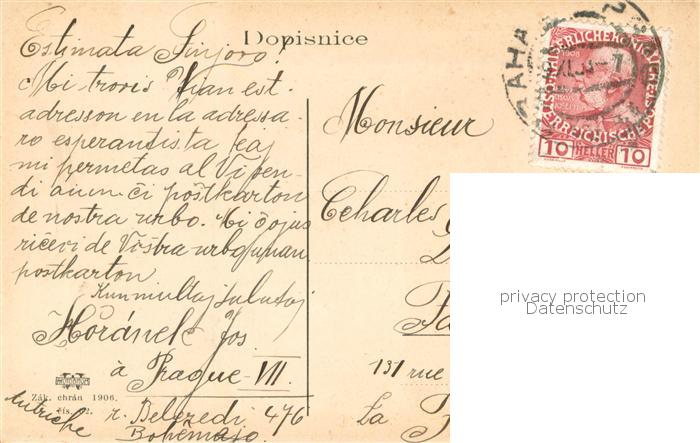 Dopisnice
Estimata Sinjoro!
Mi trovis Vian est.
adresson en la adressa-
ro esperantista kaj
mi permetas al Vi sen-
di aium. ĉi poŝtkarton
de nostra urbo. Mi ĝojus
riĉevi de Vistra urbo unan
postkarton
Kun multaj salutaj
Horánek Jos.
à Prague VII.
r. Belcredi 476
Autriche Bohêmajo.
Zák. chrán 1906.
čís. 2.
Monsieur
Charles
131 rue
La
PRAHA
KAISERLICHE KÖNIGLICHE
ÖSTERREICHISCHE POST
1908
10 HELLER 10
privacy protection
Datenschutz